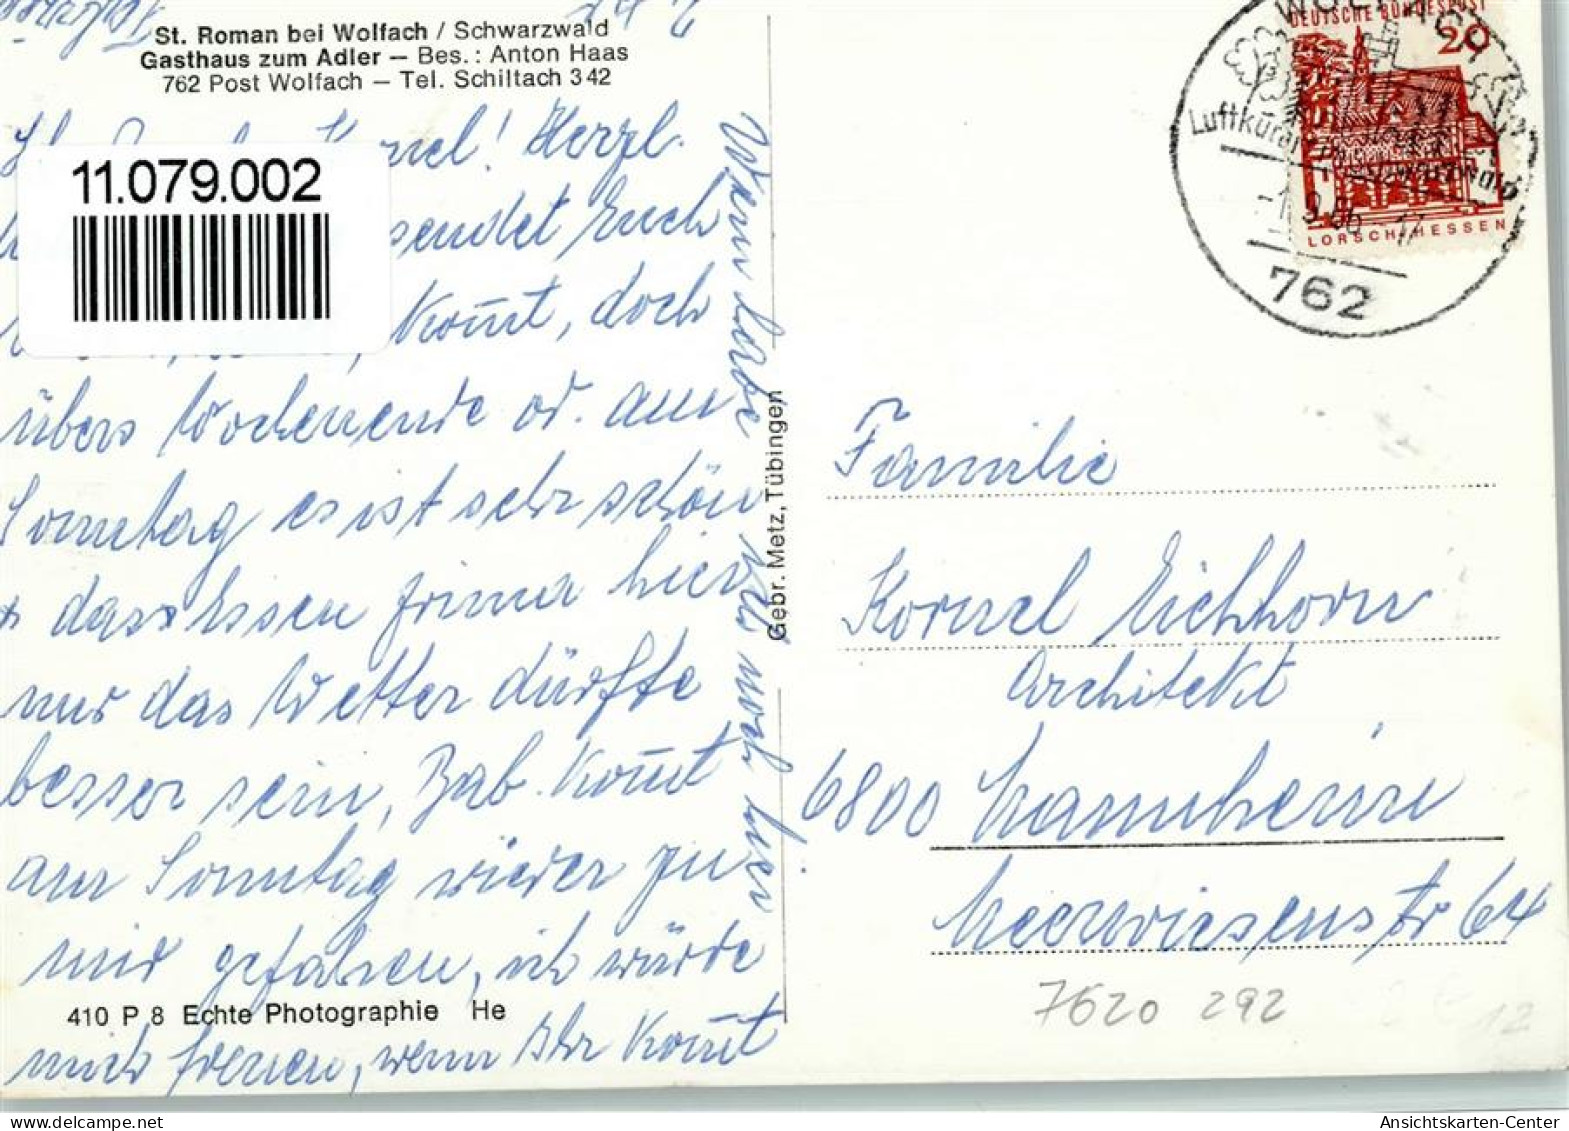 St. Roman bei Wolfach / Schwarzwald
Gasthaus zum Adler – Bes.: Anton Haas
762 Post Wolfach – Tel. Schiltach 342
Kornel! Herzl.
11.079.002
sendet Euch
Kom̄t, doch
übers Wochenende od. am
Sonntag es ist sehr schön
+ das Essen prima hier
nur das Wetter dürfte
besser sein, Bab. Kom̄t
am Sonntag wieder zu
mir gefahren, ich würde
410 P 8 Echte Photographie He
mich freuen, wenn Ihr Kom̄t
noch hier
Gebr. Metz, Tübingen
DEUTSCHE BUNDESPOST
20
LORSCH/HESSEN
Luftkurort im Schwarzwald
762
Familie
Kornel Eichhorn
Architekt
6800 Mannheim
Meerwiesenstr 64
7620 292
12
Ansichtskarten-Center